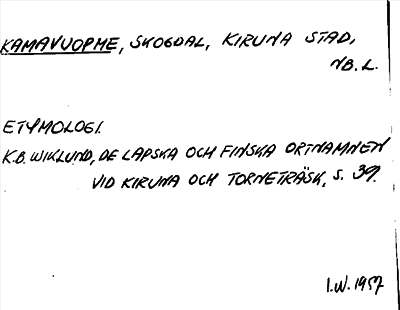 KAMAVUOPME, SKOGDAL, KIRUNA STAD,
NB. L.
ETYMOLOGI.
K.B. WIKLUND, DE LAPSKA OCH FINSKA ORTNAMNEN
VID KIRUNA OCH TORNETRÄSK, S. 39.
I.W. 1957